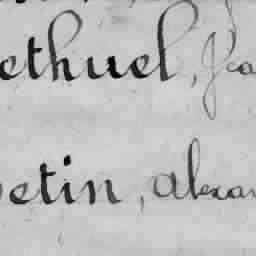 ethuel,
etin, Alexan